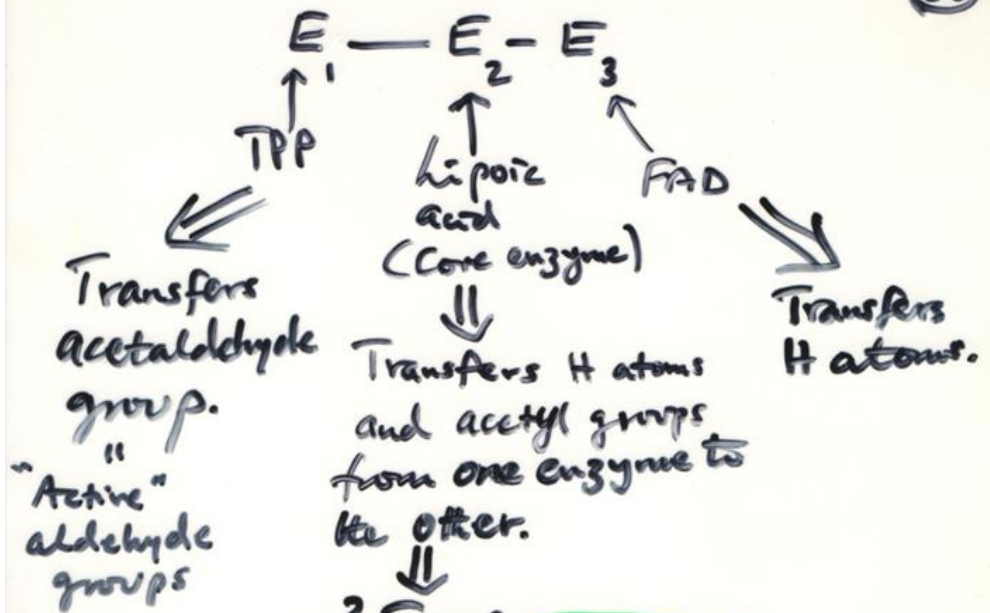 E1 — E2 - E3
TPP
Lipoic
acid
(Core enzyme)
FAD
Transfers
acetaldehyde
group.
"
"Active"
aldehyde
groups
Transfers H atoms
and acetyl groups
from one enzyme to
the other.
Transfers
H atoms.